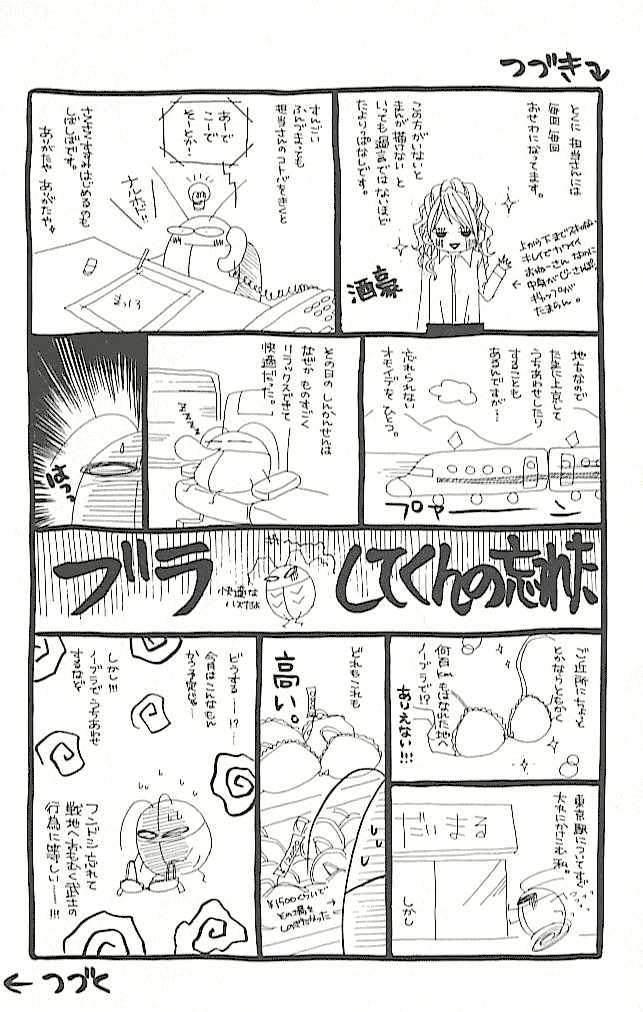 つづき
とくに 担当さんには
毎回 毎回
おせわになってます。
この方がいないと
まんが描けない と
いっても過言ではないほど
たよりっぱなしです。
上から下までスキのない
キレイでカワイイ
おねーさん なのに
中身がじーさんぽい
ギャップが
たまらん。
酒豪
すんごい
ふんづまっても
担当さんのコトバをきくと
あーで
こーで
そーとか…
ナルホド!!
まっしろ
さくさくすすみはじめるのも
しばしばです。
ありがたや ありがたや
地方なので
たまに上京して
うちあわせしたり
することも
あるんですが…
忘れられない
オモイデを ひとつ。
プァーーン
その日の しんかんせんは
なぜか ものすごく
リラックスできて
快適だった。
ZZZZ
はっ
ブラ
してくんの忘れた
快適な
ハズだよ
ご近所にちょっと
とかならともかく
何百kmもはなれた地へ
ノーブラで!?
ありえない!!!
東京駅についてすぐ
大丸にかけこむ私。
だいまる
しかし
どれもこれも
高い。
¥1500くらいで
その場を
しのぎたかった
どうする……!?
今月はこんなもと
かう予定は…
しかし!!!
ノーブラでうちあわせ
するなど
フンドシ忘れて
戦地へおもむく武士の
行為に等しい……!!!
つづく